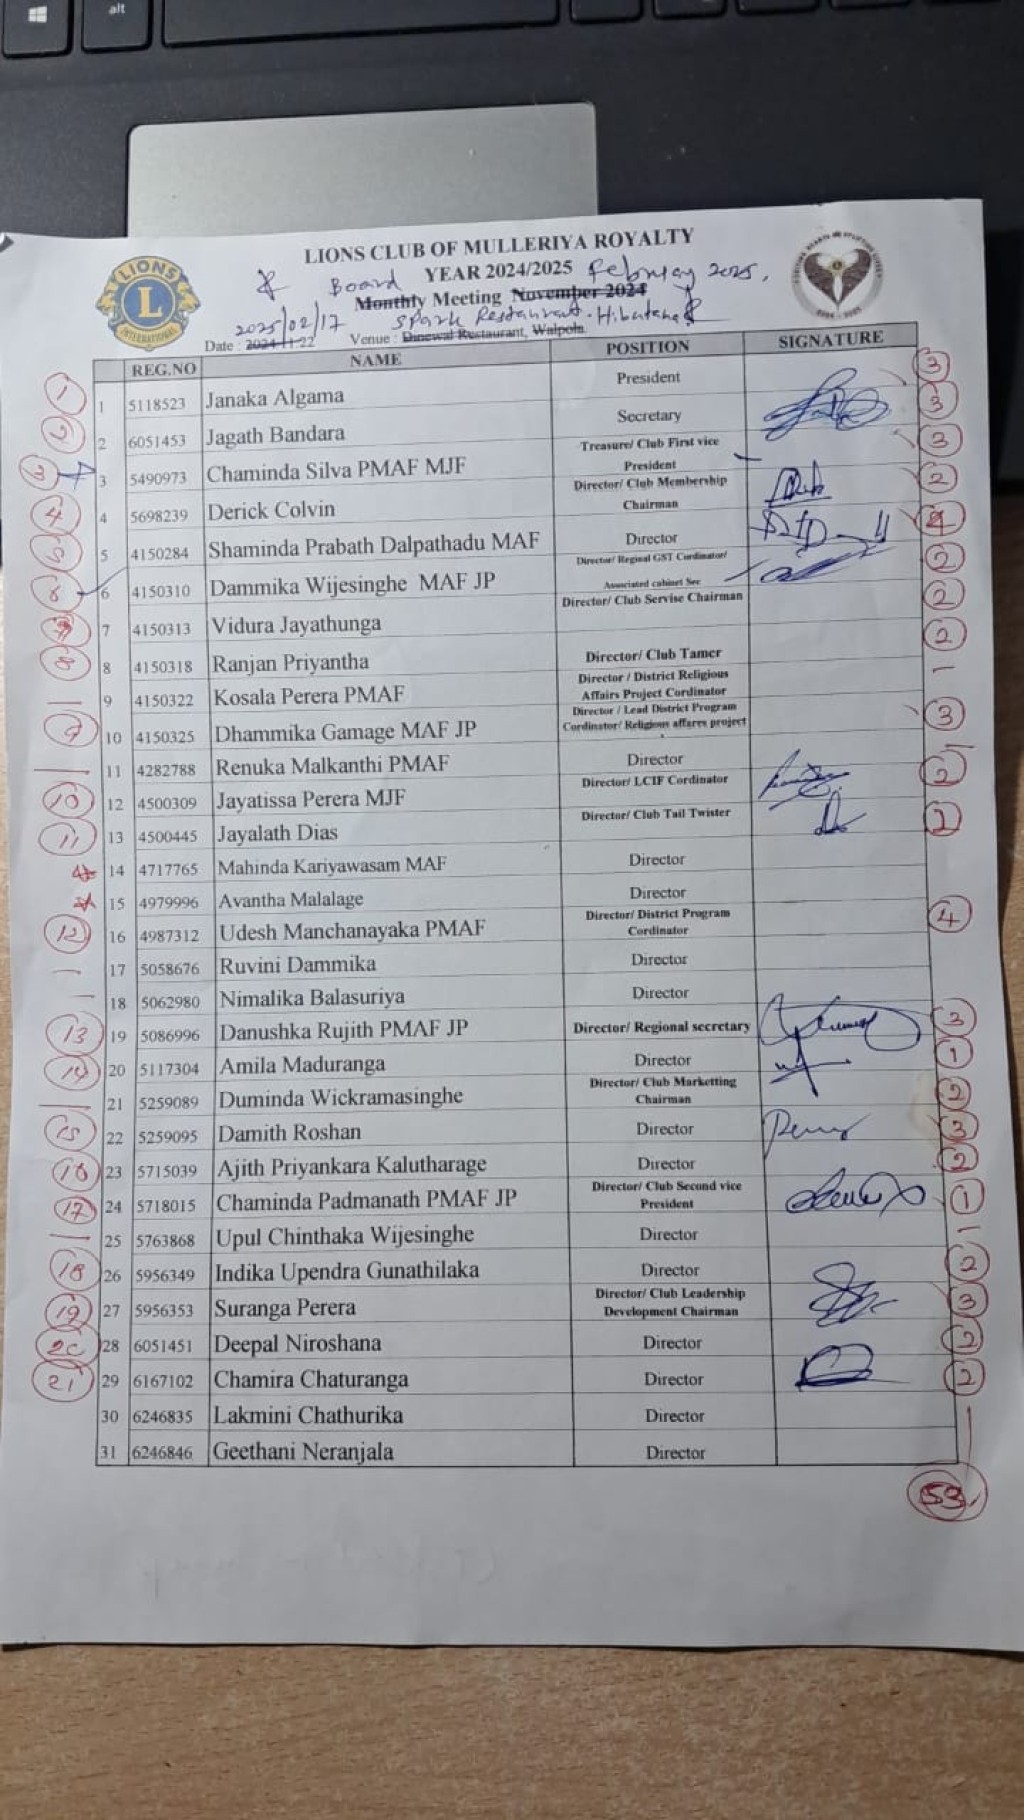 alt
LIONS CLUB OF MULLERIYA ROYALTY
YEAR 2024/2025
& Board February 2025.
Monthly Meeting November 2024
2025/02/17 Spark Restaurant - Hibutana &
Date : 2024-11.22 Venue : Dinewal Restaurant, Walpola.
LIONS L INTERNATIONAL
REG.NO NAME POSITION SIGNATURE
1 1 5118523 Janaka Algama President 3
2 2 6051453 Jagath Bandara Secretary 3
3 3 5490973 Chaminda Silva PMAF MJF Treasure/ Club First vice President 3
4 4 5698239 Derick Colvin Director/ Club Membership Chairman 2
5 5 4150284 Shaminda Prabath Dalpathadu MAF Director 4
6 6 4150310 Dammika Wijesinghe MAF JP Director/ Reginal GST Cordinator/ Associated cabinet Sec 2
7 7 4150313 Vidura Jayathunga Director/ Club Servise Chairman 2
8 8 4150318 Ranjan Priyantha Director/ Club Tamer 2
9 4150322 Kosala Perera PMAF Director / District Religious Affairs Project Cordinator
9 10 4150325 Dhammika Gamage MAF JP Director / Lead District Program Cordinator/ Religious affares project 3
11 4282788 Renuka Malkanthi PMAF Director
10 12 4500309 Jayatissa Perera MJF Director/ LCIF Cordinator 2
11 13 4500445 Jayalath Dias Director/ Club Tail Twister 2
14 4717765 Mahinda Kariyawasam MAF Director
15 4979996 Avantha Malalage Director
12 16 4987312 Udesh Manchanayaka PMAF Director/ District Program Cordinator 4
17 5058676 Ruvini Dammika Director
18 5062980 Nimalika Balasuriya Director
13 19 5086996 Danushka Rujith PMAF JP Director/ Regional secretary 3
14 20 5117304 Amila Maduranga Director 1
21 5259089 Duminda Wickramasinghe Director/ Club Marketting Chairman 2
15 22 5259095 Damith Roshan Director 3
16 23 5715039 Ajith Priyankara Kalutharage Director 2
17 24 5718015 Chaminda Padmanath PMAF JP Director/ Club Second vice President 1
25 5763868 Upul Chinthaka Wijesinghe Director
18 26 5956349 Indika Upendra Gunathilaka Director 2
19 27 5956353 Suranga Perera Director/ Club Leadership Development Chairman 3
20 28 6051451 Deepal Niroshana Director 2
21 29 6167102 Chamira Chaturanga Director 2
30 6246835 Lakmini Chathurika Director
31 6246846 Geethani Neranjala Director
53